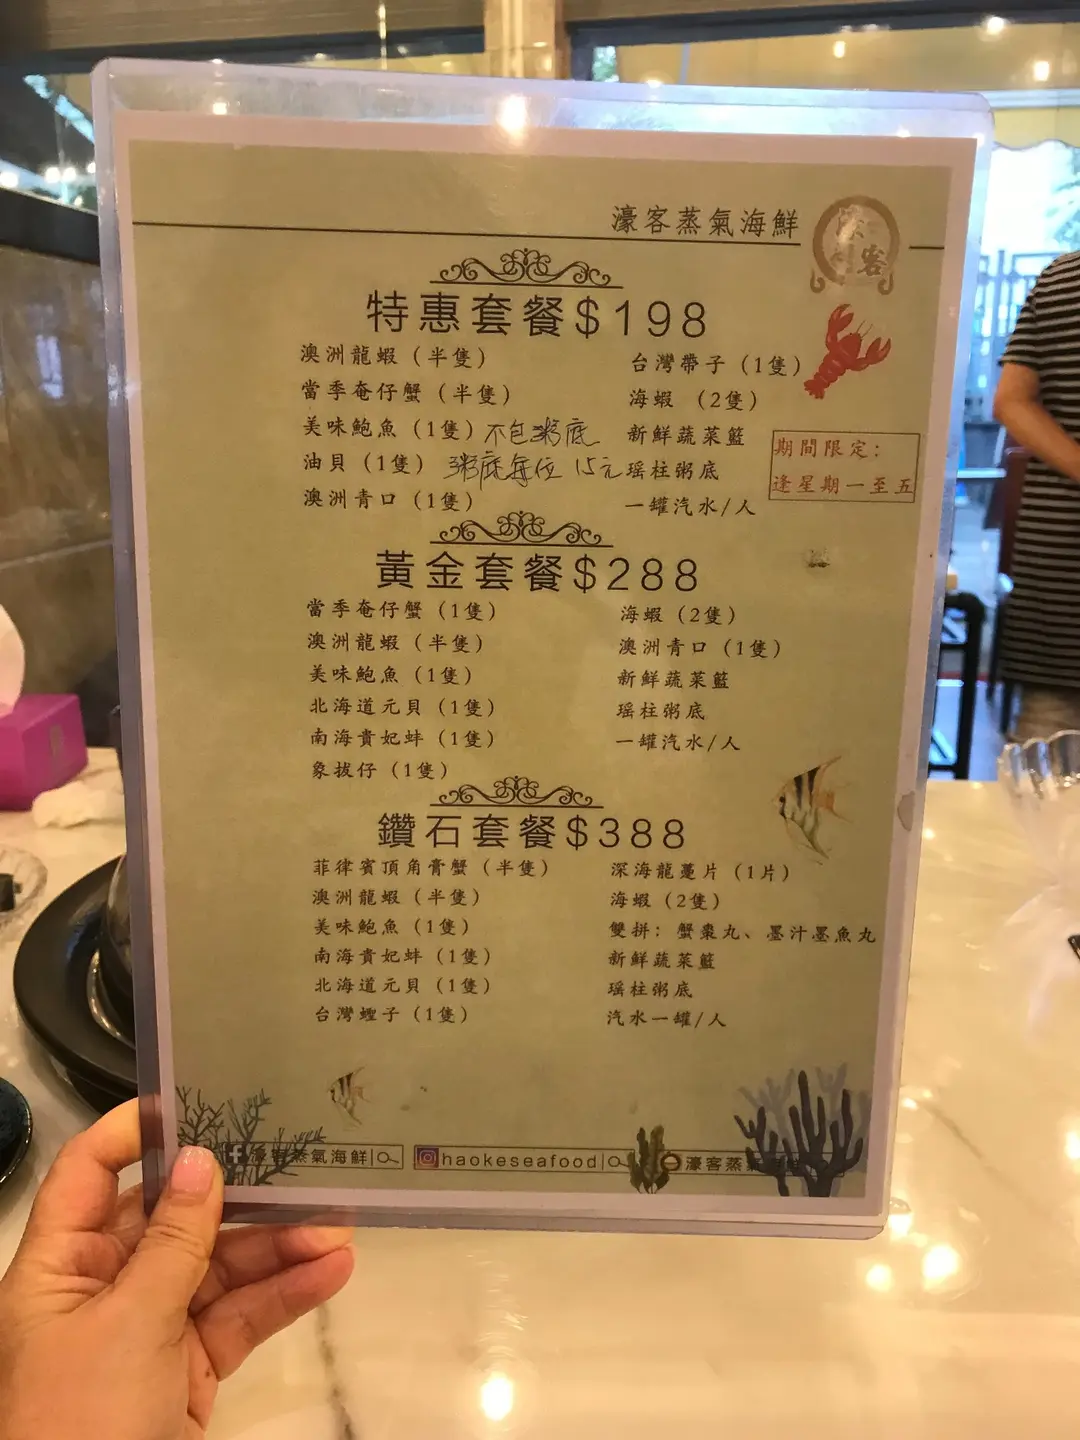 濠客蒸氣海鮮
濠客
特惠套餐$198
澳洲龍蝦 (半隻)
當季奄仔蟹 (半隻)
美味鮑魚 (1隻) 不包粥底
油貝 (1隻) 粥底每位 15元
澳洲青口 (1隻)
台灣帶子 (1隻)
海蝦 (2隻)
新鮮蔬菜籃
瑶柱粥底
一罐汽水/人
期間限定:
逢星期一至五
黃金套餐$288
當季奄仔蟹 (1隻)
澳洲龍蝦 (半隻)
美味鮑魚 (1隻)
北海道元貝 (1隻)
南海貴妃蚌 (1隻)
象拔仔 (1隻)
海蝦 (2隻)
澳洲青口 (1隻)
新鮮蔬菜籃
瑶柱粥底
一罐汽水/人
鑽石套餐$388
菲律賓頂角膏蟹 (半隻)
澳洲龍蝦 (半隻)
美味鮑魚 (1隻)
南海貴妃蚌 (1隻)
北海道元貝 (1隻)
台灣蟶子 (1隻)
深海龍躉片 (1片)
海蝦 (2隻)
雙拼: 蟹棗丸、墨汁墨魚丸
新鮮蔬菜籃
瑶柱粥底
汽水一罐/人
濠客蒸氣海鮮
haokeseafood
濠客蒸氣海鮮